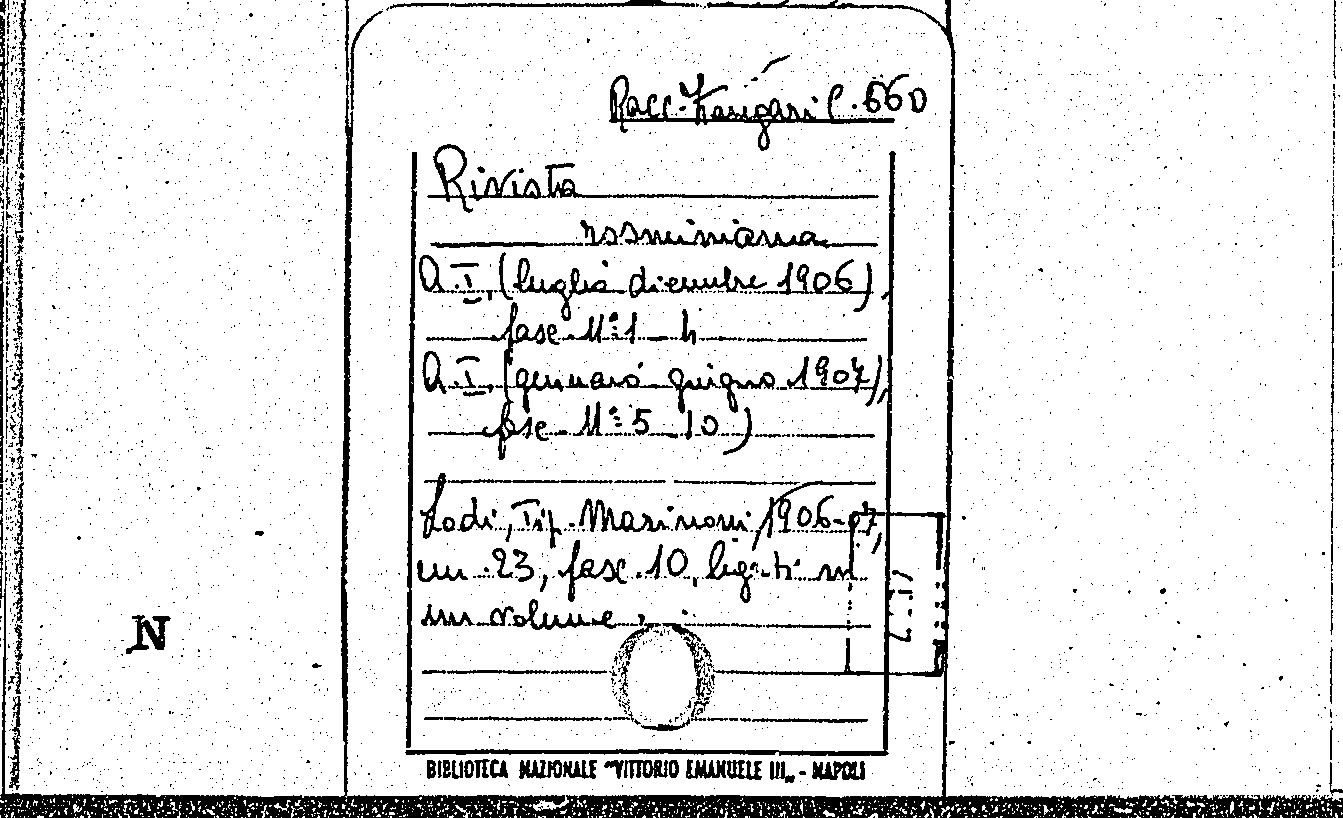 Racc. Zangari C. 660
Rivista
rosminiana
A. I, (luglio dicembre 1906),
fasc. Nº 1 - 4
A. I, (gennaio giugno 1907),
fasc. Nº 5 10)
Lodi, Tip. Marinoni, 1906-07,
cm. 23, fasc. 10, legati in
un volume.
N
BIBLIOTECA NAZIONALE "VITTORIO EMANUELE III„ - NAPOLI